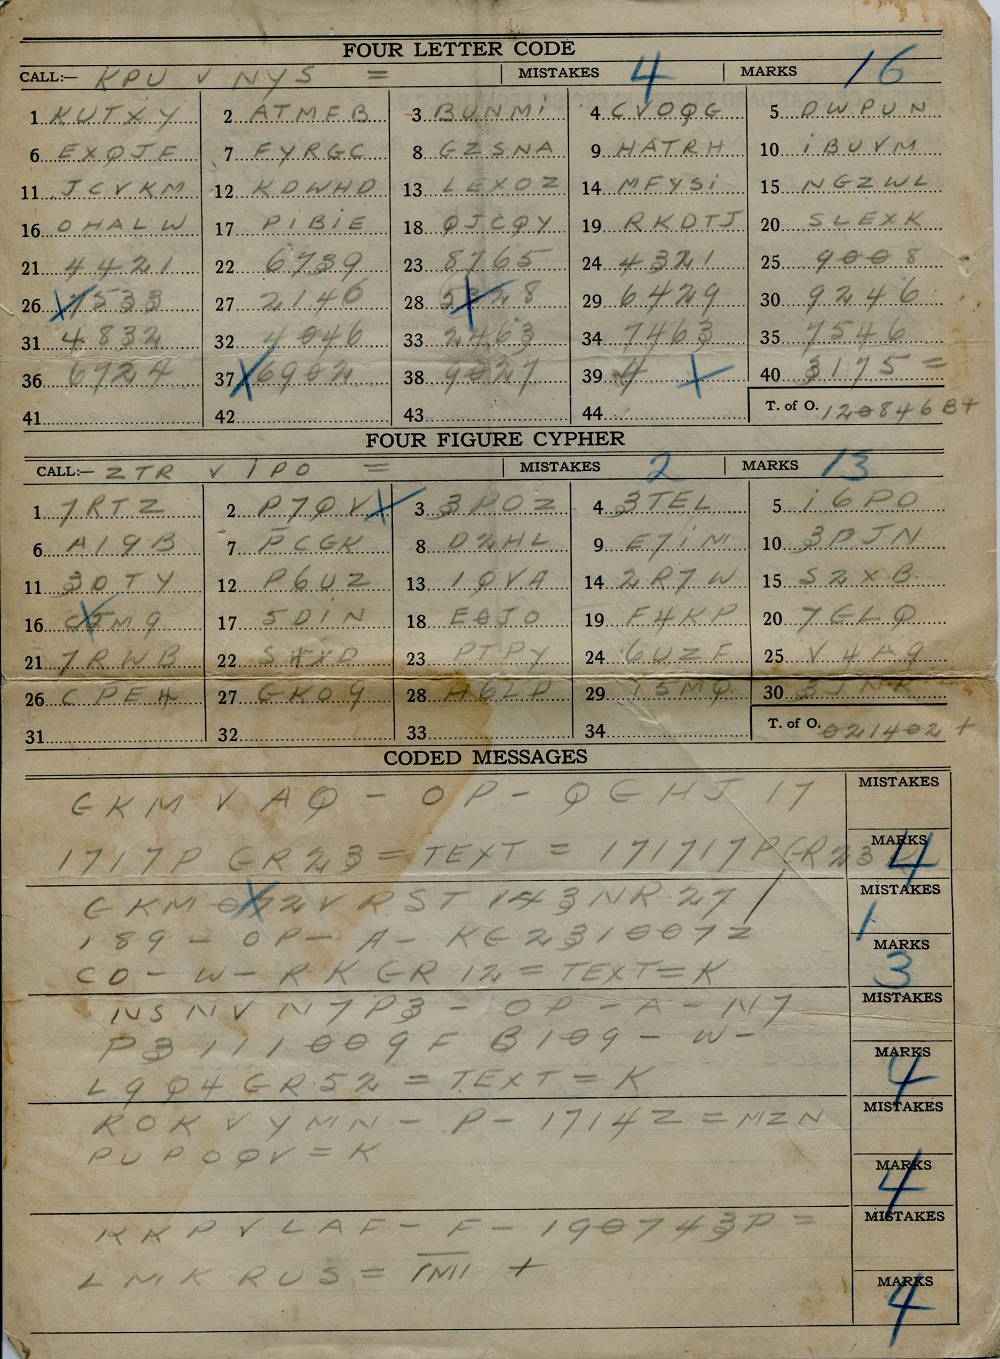 FOUR LETTER CODE
CALL:— KPU V NYS = MISTAKES 4 MARKS 16
1 KUTXY 2 ATMFB 3 BUNMi 4 CVOQG 5 DWPUN
6 EXQJF 7 FYRGC 8 GZSNA 9 HATRH 10 iBUVM
11 JCVKM 12 KDWHD 13 LEXOZ 14 MFYSi 15 NGZWL
16 OHALW 17 PiBiE 18 QJCQY 19 RKDTJ 20 SLEXK
21 4421 22 6739 23 8765 24 4321 25 9008
26 7533 27 2146 28 28 29 6429 30 9246
31 4832 32 4046 33 2463 34 7463 35 7546
36 6724 37 6902 38 9027 39 4 40 3175 =
41 42 43 44 T. of O. 120846B+
FOUR FIGURE CYPHER
CALL:— ZTR V iPO = MISTAKES 2 MARKS 13
1 7RTZ 2 P7QV 3 3POZ 4 3TEL 5 i6PO
6 A19B 7 PCGK 8 D2HL 9 E7iM 10 3DJN
11 3OTY 12 P6UZ 13 1QVA 14 2R7W 15 S2XB
16 C5M9 17 5DiN 18 E0JO 19 F4KP 20 7GLQ
21 7RWB 22 23 PTPY 24 6UZF 25 V4A9
26 CPE4 27 GKO9 28 H6LP 29 15MQ 30 3JNK
31 32 33 34 T. of O. 021402 +
CODED MESSAGES
GKM V AQ - OP - QGHJ 17 MISTAKES
1717P GR23 = TEXT = 171717P GR23 K MARKS 4
GKM 072 V RST 143 NR 27 / MISTAKES 1
189 - OP - A - KG 231007Z MARKS
CD - W - RK GR 12 = TEXT = K 3
NSNV N7P3 - OP - A - N7 MISTAKES
P3 111009F B109 - W - MARKS
L9Q4 GR52 = TEXT = K 4
ROK V YMN - P - 1714Z = MZN MISTAKES
PUP OQV = K MARKS 4
KKP V LAF - F - 190743P = MISTAKES
LMK RUS = IMI + MARKS 4